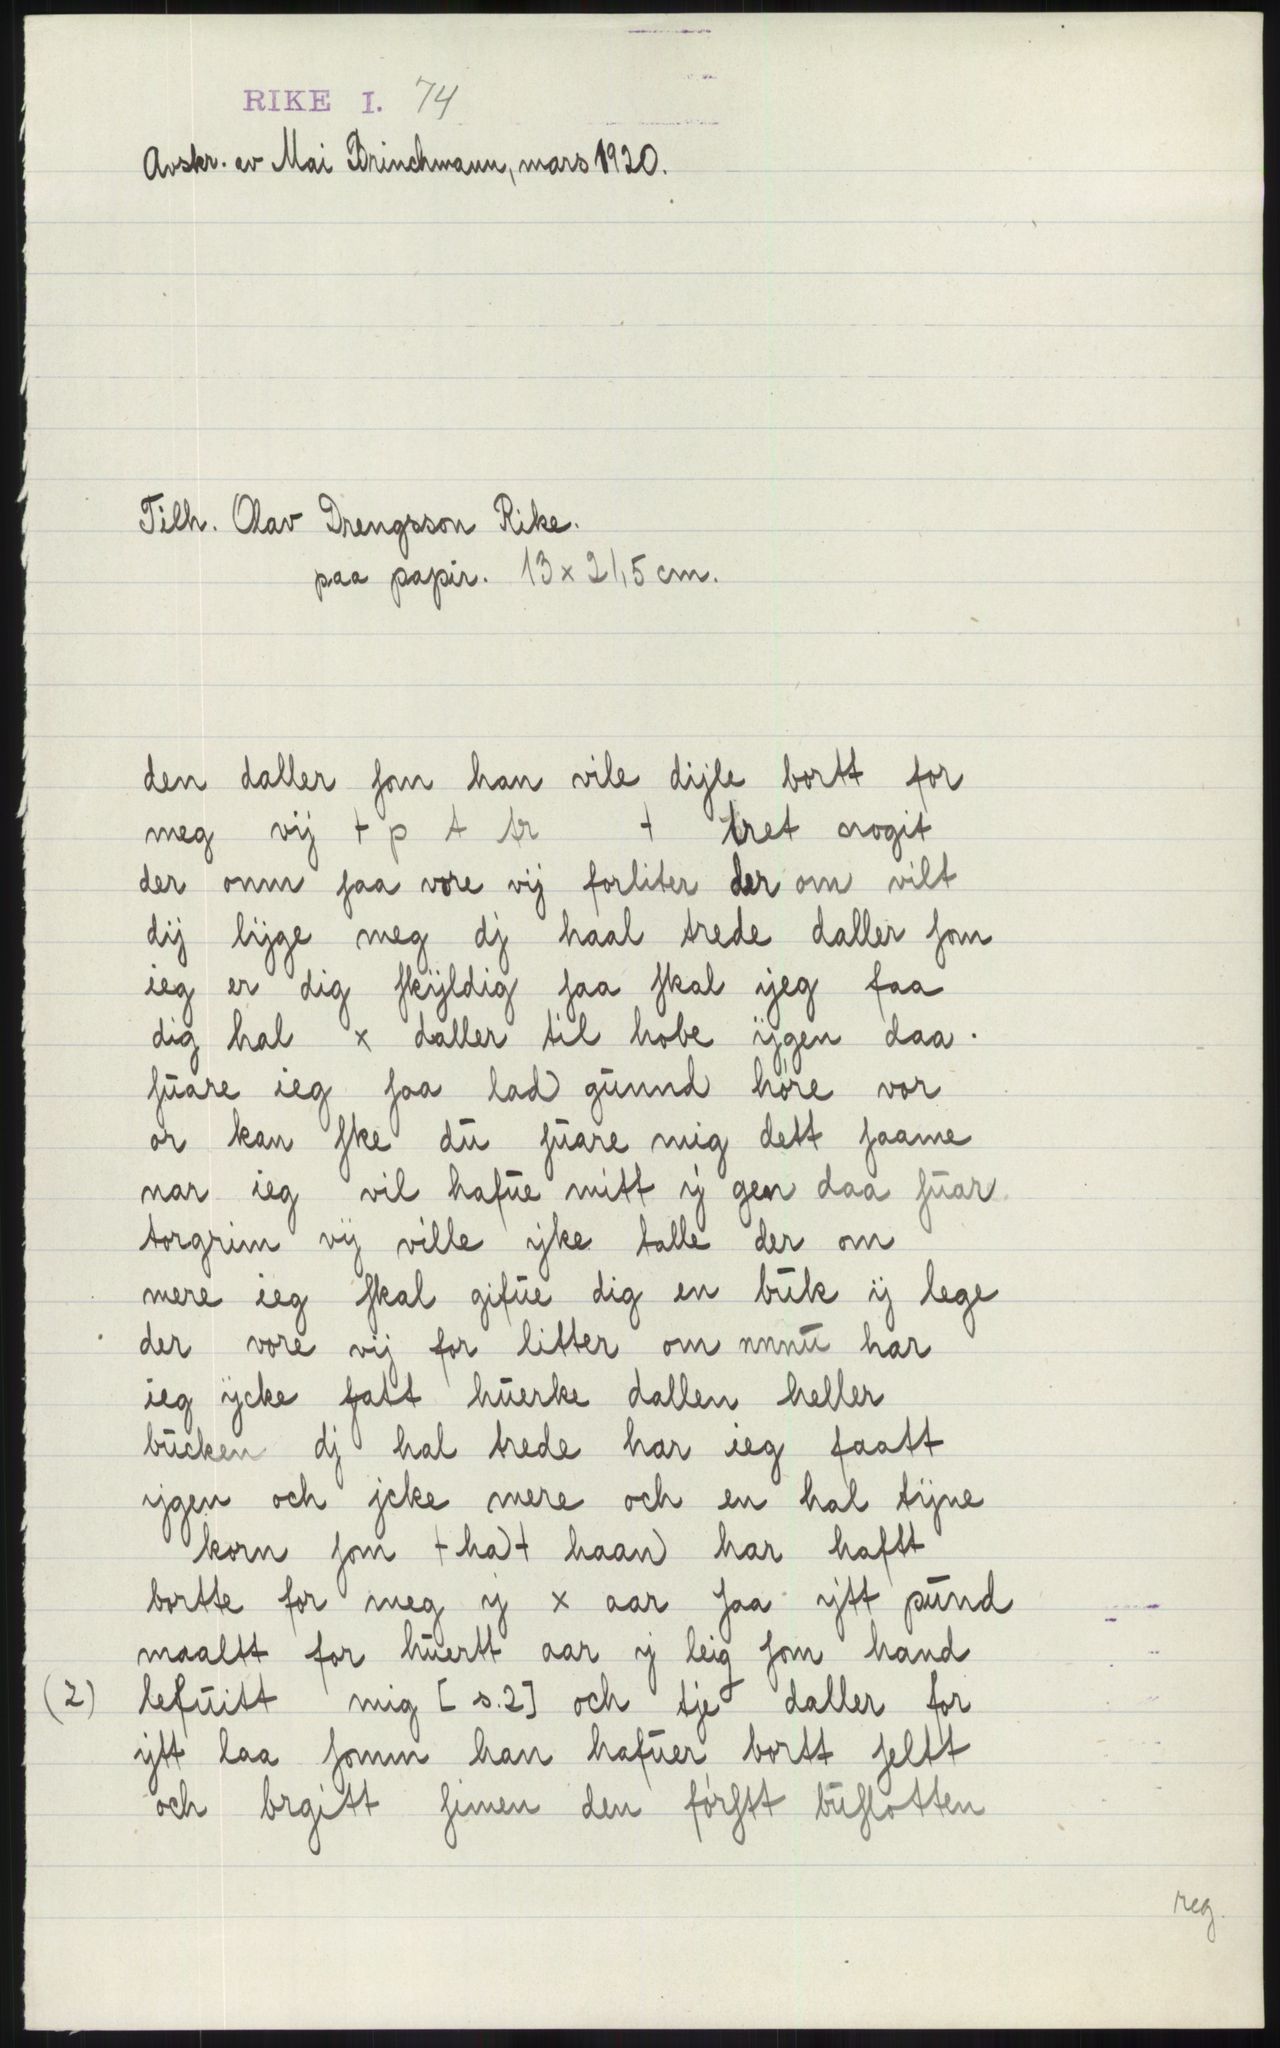 RIKE I. 74
Avskr. av Mai Brinchmann, mars 1920.
Tilh. Olav Drengsson Rike.
paa papir. 13 x 21,5 cm.
den daller som han vile dijle bortt for
meg vij + p t tr + tret nogit
der omm saa vore vij forliter der om vilt
dij lijge meg dj haal trede daller som
ieg er dig skÿldig saa skal ijeg faa
dig hal x daller til hobe ÿgen daa.
suare ieg saa lad gunnd höre vor
or kan ske dū sūare mig dett saame
nar ieg vil hafūe mitt ij gen daa sūar
torgrim vij ville ijke talle der om
mere ieg skal gifūe dig en būk ij lege
der vore vij for litter om nnnū har
ieg ÿcke fatt hūerke dallen heller
būcken dj hal trede har ieg faatt
ijgen och jcke mere och en hal tijne
korn som + ha) + haan) har haftt
bortte for meg ij x aar saa ijtt pūnd
maaltt for hūertt aar ij leig som hand
(2) lefūitt mig [s. 2] och tje daller for
ijtt laa somm han hafūer bortt seltt
och brgitt simen den förstt būslotten
reg.